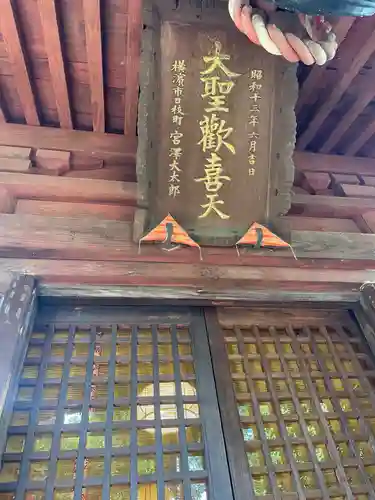 昭和十三年六月吉日
大聖歡喜天
横濱市日枝町
宮澤大太郎